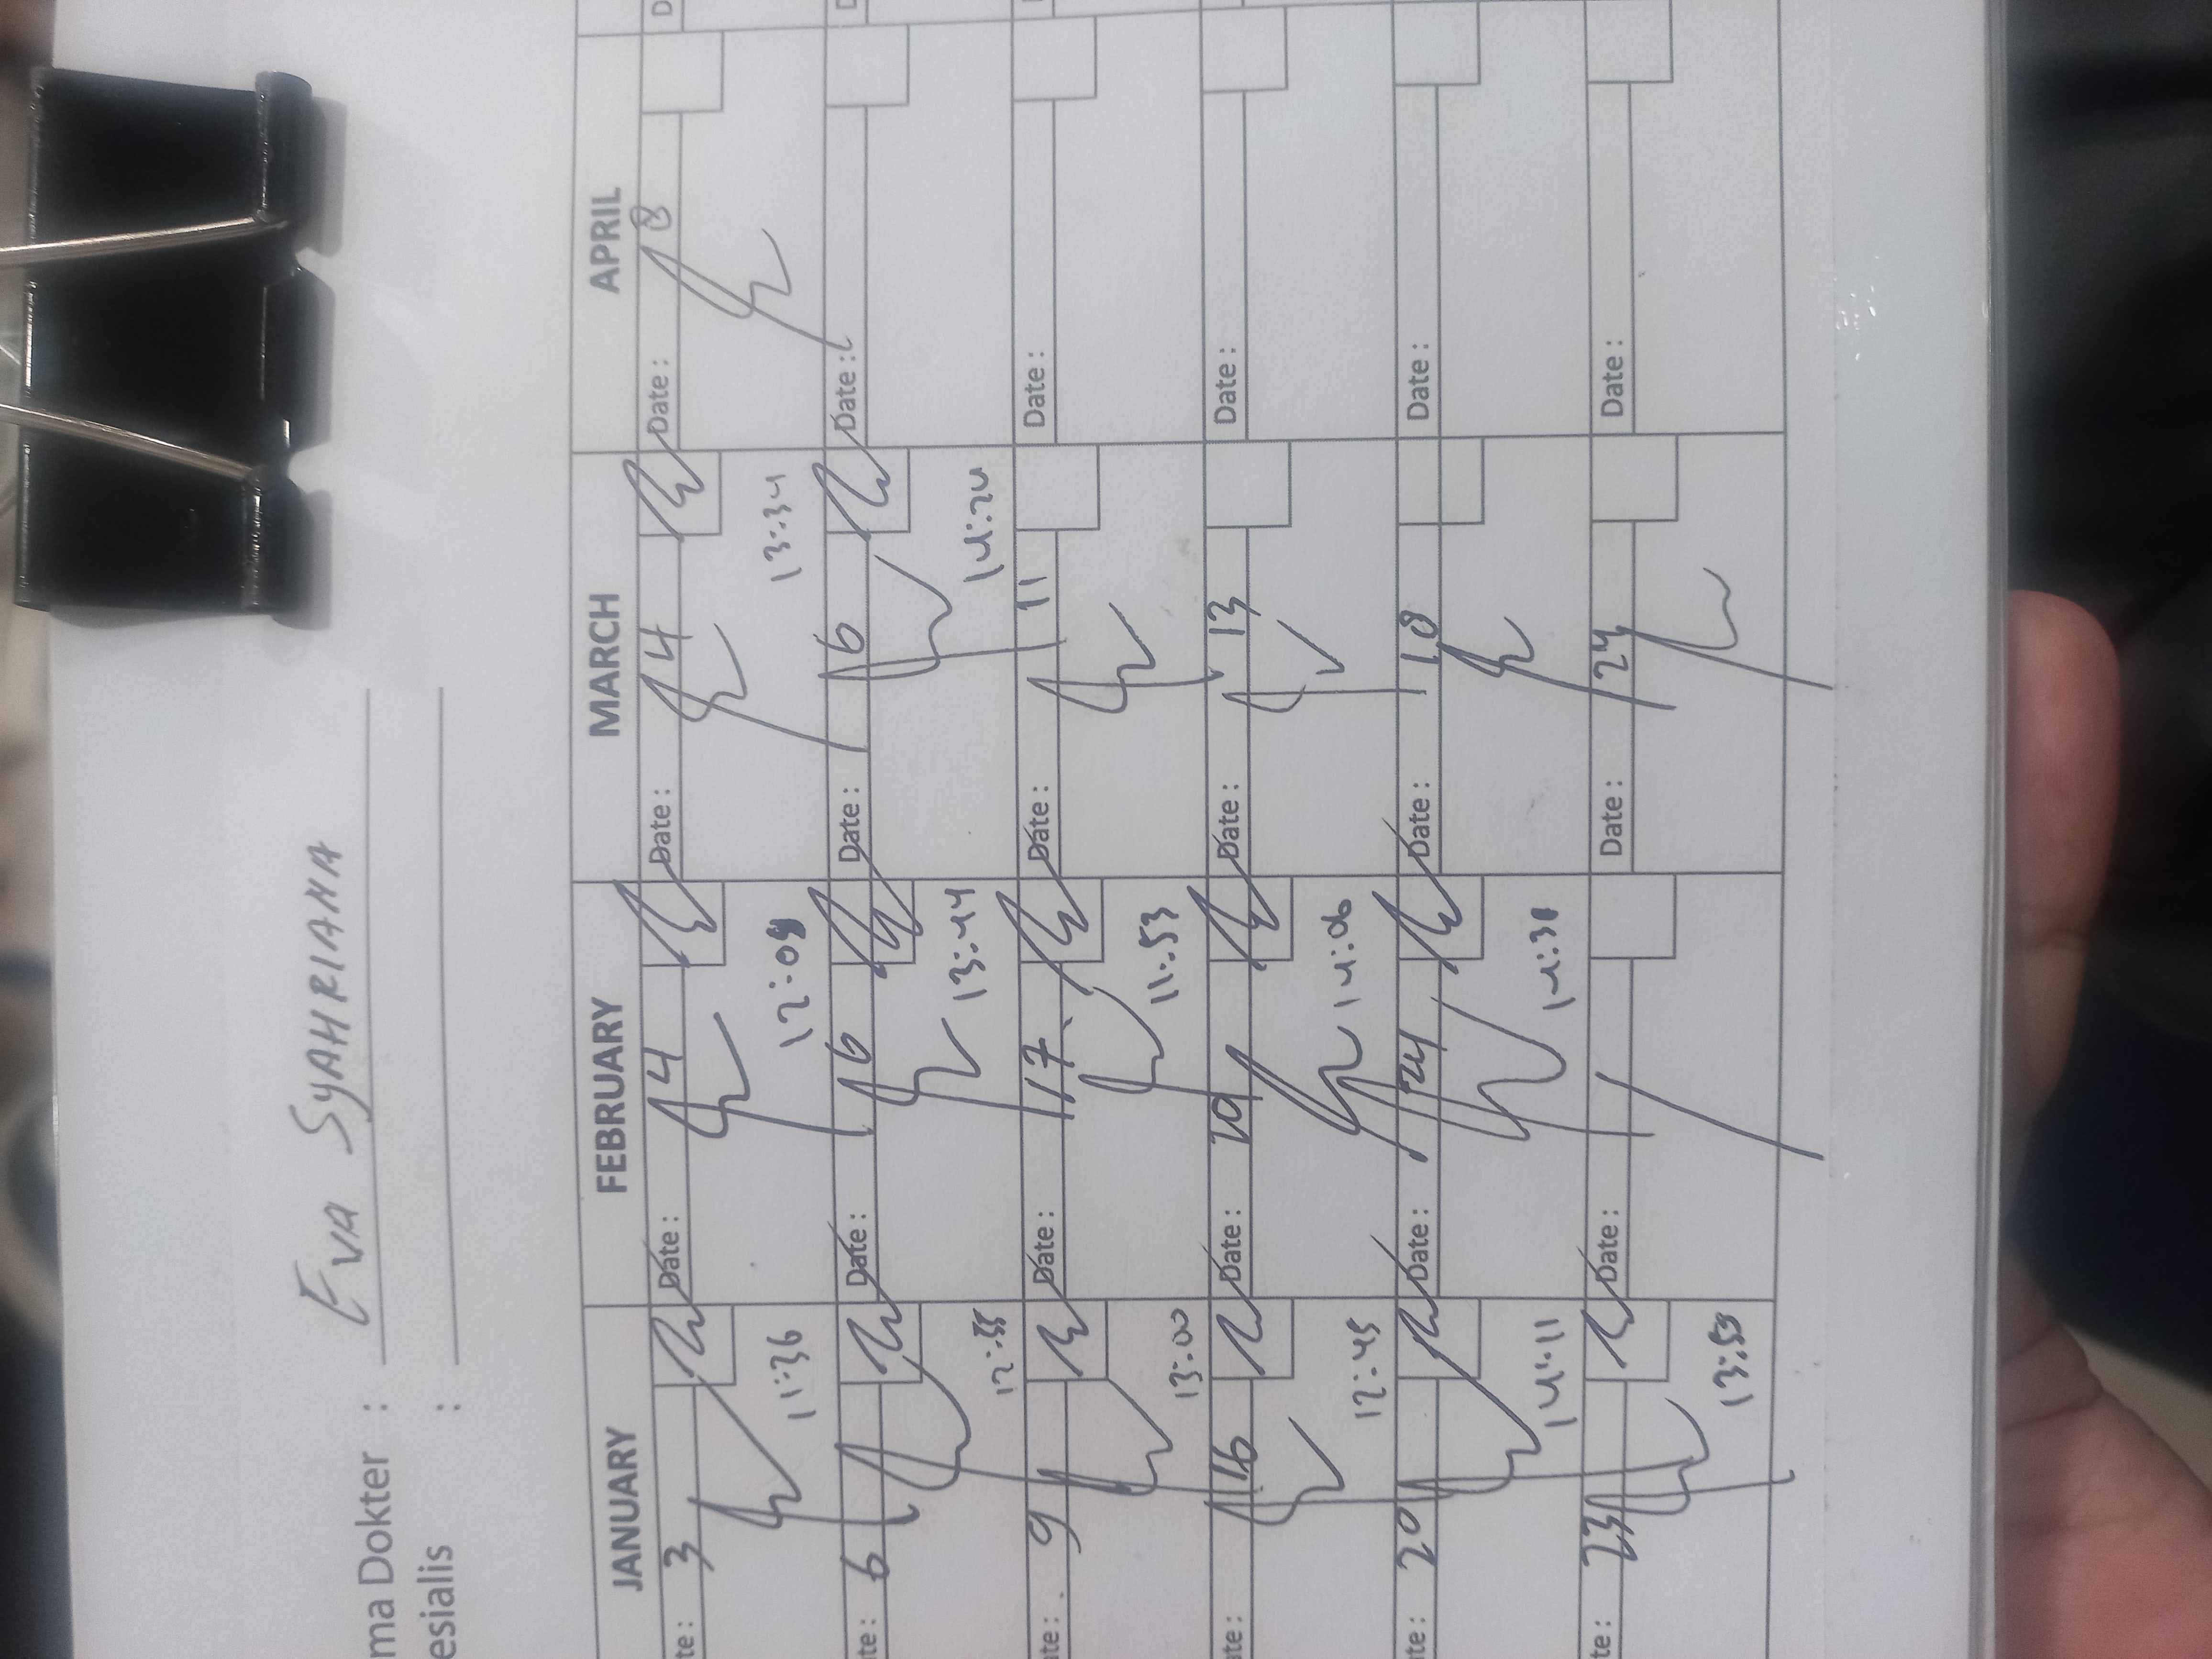 ma Dokter : Eva SYAHRIANA
esialis :
JANUARY FEBRUARY MARCH APRIL
te: 3 Date: 4 Date: 4 Date: 8 D
11:36 12:09 13:34
te: 6 Date: 6 Date: 6 Date: D
12:55 13:44 14:24
ate: 9 Date: 17 Date: 11 Date:
13:00 11:53
te: 16 Date: 19 Date: 13 Date:
12:45 14:06
te: 20 Date: 24 Date: 18 Date:
14:11 14:30
te: 23 Date: Date: 24 Date: